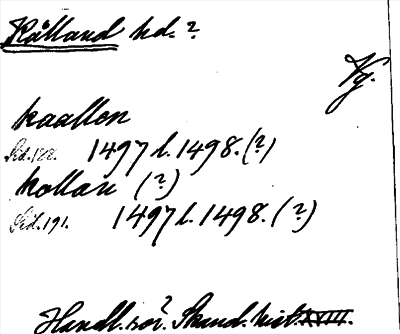 Kålland hd. ?
Vg.
kaallon
Sid. 122. 1497 l. 1498. (?)
kollan (?)
Sid. 191. 1497 l. 1498. (?)
Handl. rör. Skand. hist. XVIII.